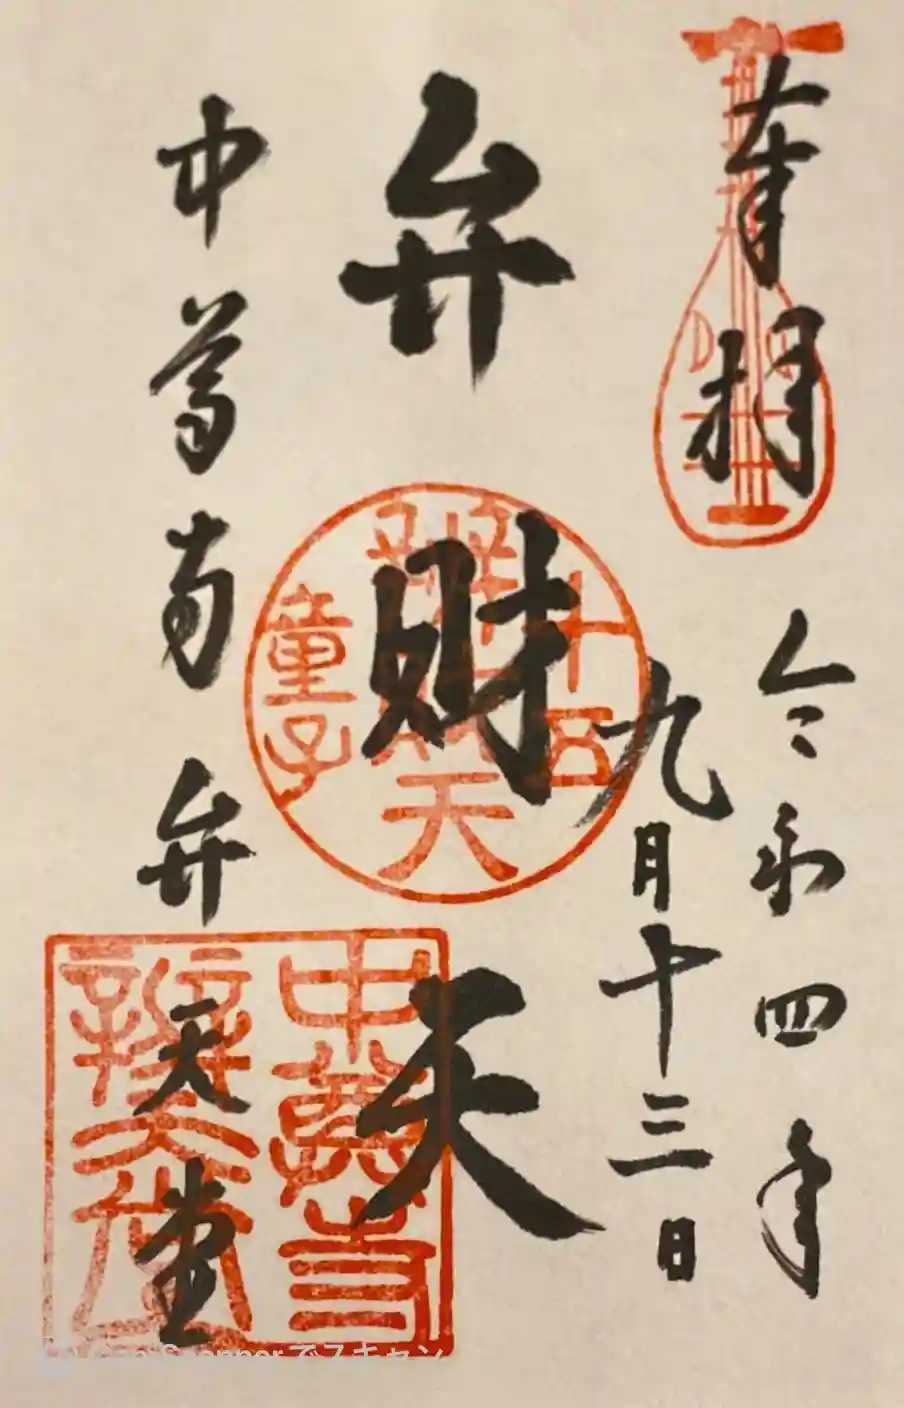 奉拝
令和四年
九月十三日
弁財天
十五
辯財天
童子
中尊寺弁天堂
中尊寺
辯天堂
Scannerでスキャン